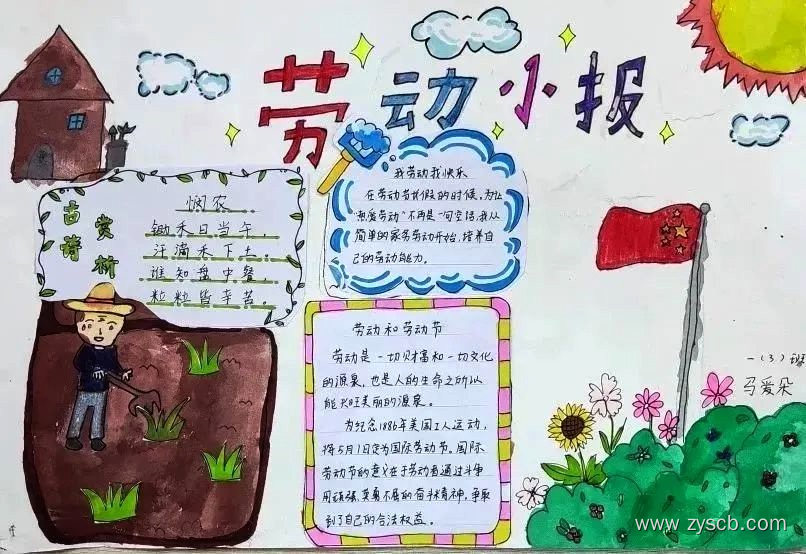 劳动小报
古诗
赏析
悯农
锄禾日当午，
汗滴禾下土。
谁知盘中餐，
粒粒皆辛苦。
我劳动我快乐
在劳动节放假的时候，为让
"热爱劳动"不再是一句空话，我从
简单的家务劳动开始，培养自
己的劳动能力。
劳动和劳动节
劳动是一切财富和一切文化
的源泉，也是人的生命之所以
能兴旺美丽的源泉。
为纪念1886年美国工人运动，
将5月1日定为国际劳动节。国际
劳动节的意义在于劳动者通过斗争
用顽强、英勇不屈的奋斗精神，争取
到了自己的合法权益。
一(3)班
马爱朵
www.zyscb.com